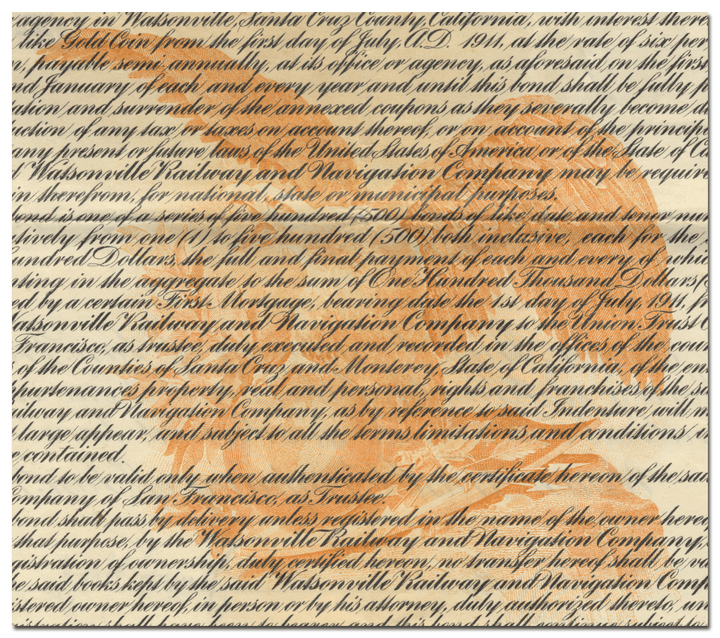 agency in Watsonville, Santa Cruz County, California, with interest there
like Gold Coin from the first day of July, A.D. 1911, at the rate of six per
payable semi-annually, at its office or agency, as aforesaid on the first
January of each and every year and until this bond shall be fully p
ation and surrender of the annexed coupons as they severally become d
uction of any tax or taxes on account thereof, or on account of the princip
any present or future laws of the United States of America or of the State of Ca
Watsonville Railway and Navigation Company may be require
in therefrom, for national, state or municipal purposes.
bond is one of a series of five hundred (500) bonds of like date and tenor nu
tively from one (1) to five hundred (500) both inclusive, each for the
undred Dollars the full and final payment of each and every of whic
ting in the aggregate to the sum of One Hundred Thousand Dollars
ed by a certain First Mortgage, bearing date the 1st day of July, 1911,
atsonville Railway and Navigation Company to the Union Trust
Francisco, as trustee, duly executed and recorded in the offices of the cou
of the Counties of Santa Cruz and Monterey, State of California, of the en
purtenances property, real and personal, rights and franchises of the sa
ilway and Navigation Company, as by reference to said Indenture will m
large appear, and subject to all the terms limitations and conditions
e contained.
bond to be valid only when authenticated by the certificate hereon of the said
ompany of San Francisco, as Trustee.
bond shall pass by delivery unless registered in the name of the owner here
that purpose, by the Watsonville Railway and Navigation Company,
gistration of ownership, duly certified hereon, no transfer hereof shall be va
he said books kept by the said Watsonville Railway and Navigation Comp
istered owner hereof, in person or by his attorney, duly authorized thereto, un